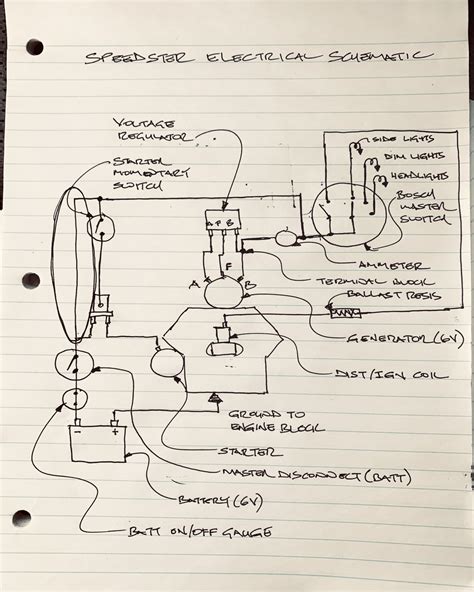 SPEEDSTER ELECTRICAL SCHEMATIC
VOLTAGE
REGULATOR
STARTER
MOMENTARY
SWITCH
SIDE LIGHTS
DIM LIGHTS
HEADLIGHTS
BOSCH
MASTER
SWITCH
A F B
A
F
B
AMMETER
TERMINAL BLOCK
BALLAST RESIS
GENERATOR (6V)
DIST/IGN COIL
GROUND TO
ENGINE BLOCK
STARTER
MASTER DISCONNECT (BATT)
- +
BATTERY (6V)
BATT ON/OFF GAUGE